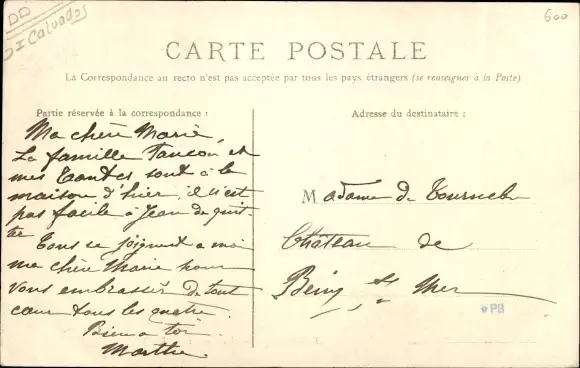 DD
Calvados
600
CARTE POSTALE
La Correspondance au recto n'est pas acceptée par tous les pays étrangers (se renseigner à la Poste)
Partie réservée à la correspondance :
Ma chère Marie,
La famille et
mes Tantes sont à la
maison d'hier, il n'est
pas facile à Jean de quit-
ter
Tous se joignent a moi
ma chère Marie pour
vous embrasser de tout
cœur tous les quatre.
Bien a toi
Marthe.
Adresse du destinataire :
Madame de
Château de
Bény s/ Mer
PB